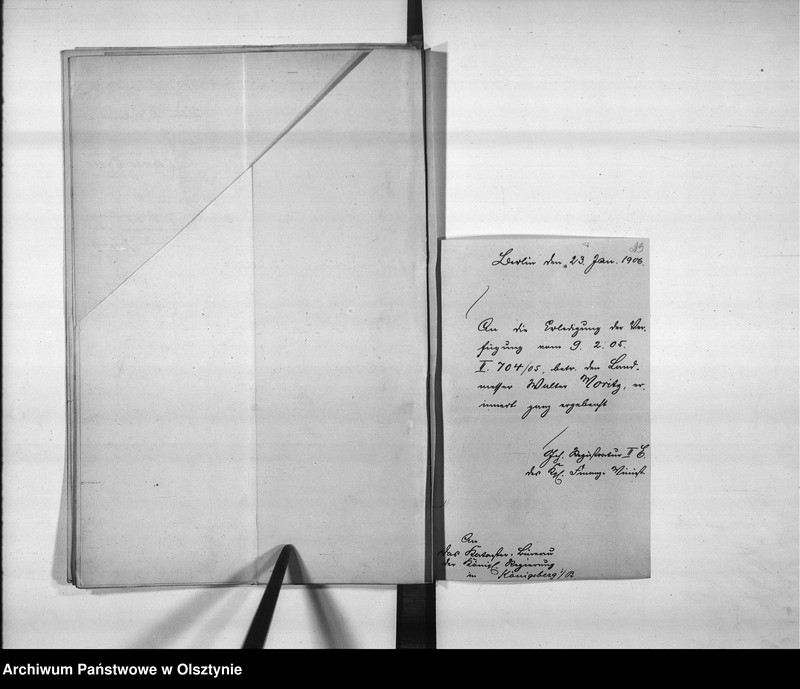 23
Berlin den 23. Jan. 1906.
An die Erledigung der Ver-
fügung vom 9. 2. 05.
II. 704/05, betr. den Land-
messer Walter Moritz, er-
innert ganz ergebenst
Geh. Registratur II C.
des Kgl. Finanz-Minist.
An
das Kataster-Büreau
der Königl Regierung
in Königsberg i/Pr.
Archiwum Państwowe w Olsztynie